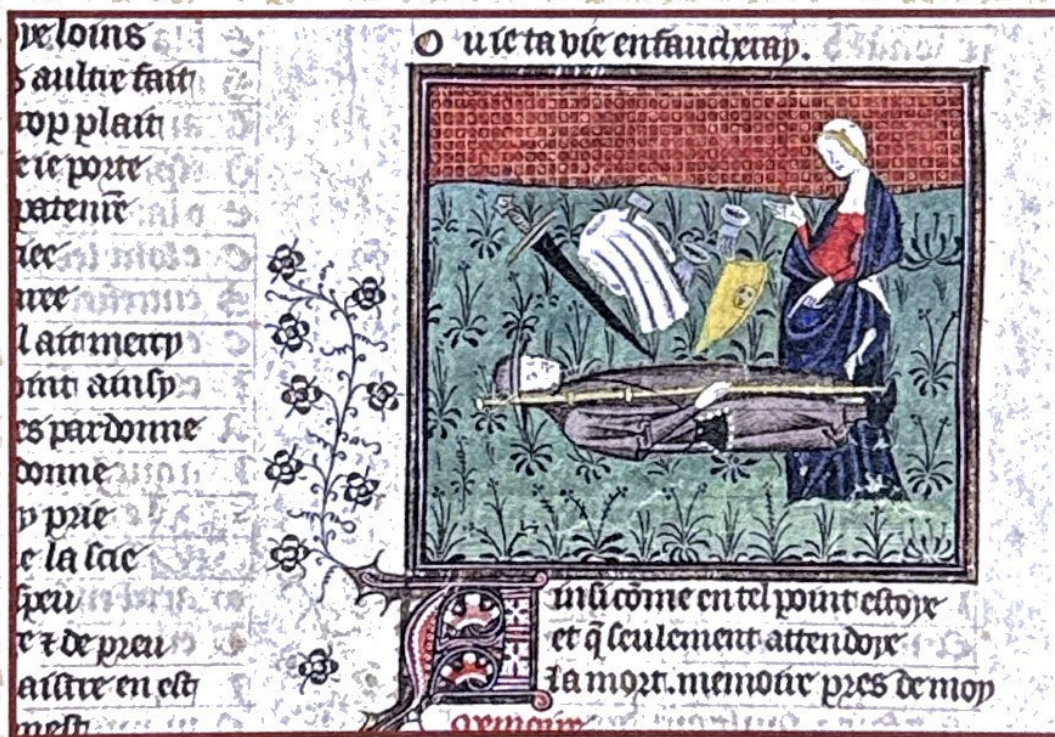 ye loins
s aultre fait
trop plait
e ie porte
patenire
nee
uree
l ait mercy
oint ainsy
es pardonne
donne
y prie
e la scie
speu
e & de preu
aistre en est
nest
Ou ie ta vie enfaucheray.
Ainsi cōme en tel point estoye
et q̄ seulement attendoye
la mort. memoire pres de moy